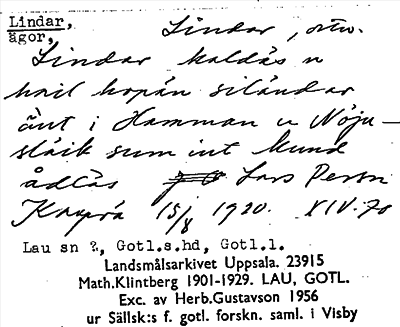 Lindar,
ägor,
Lindar, ortn.
Lindar kaldäs n
hail hopän siländar
änt i Hamman u Nöju-
släik sum int kund
ådläs Lars Persn
15/8 1920. XIV. 70
Lau sn ?, Gotl.s.hd, Gotl.l.
Landsmålsarkivet Uppsala. 23915
Math.Klintberg 1901-1929. LAU, GOTL.
Exc. av Herb.Gustavson 1956
ur Sällsk:s f. gotl. forskn. saml. i Visby